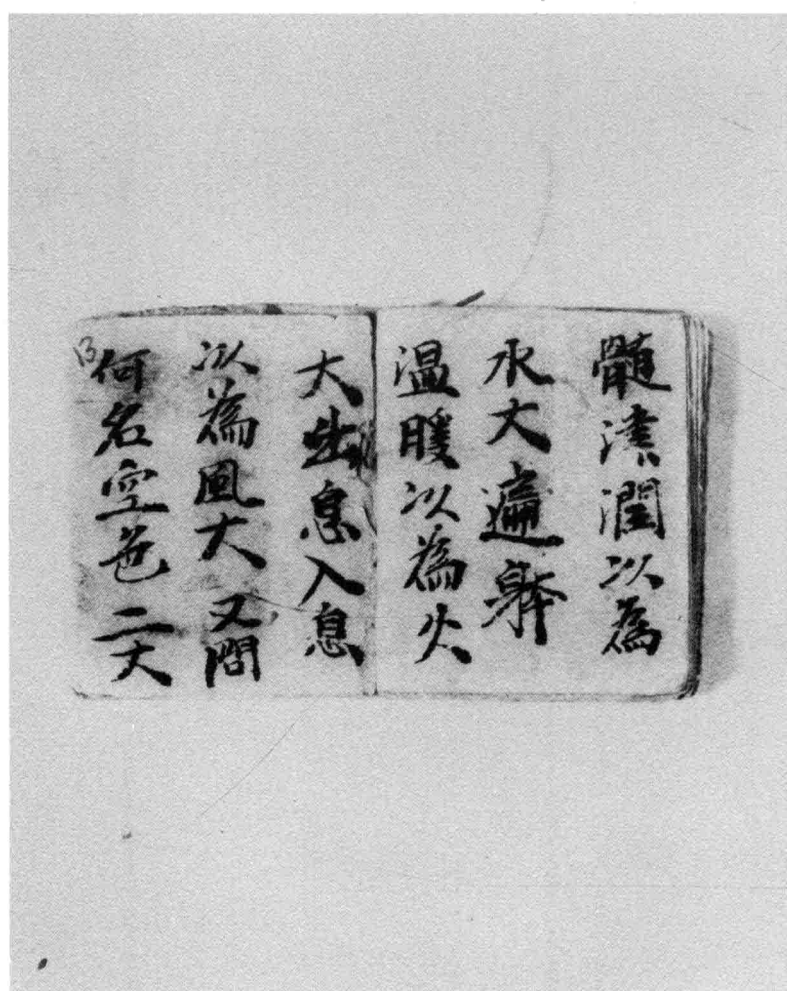 髓津潤以為
水大遍躰
温暖以為火
大出息入息
以為風大又問
何名空色二大
13